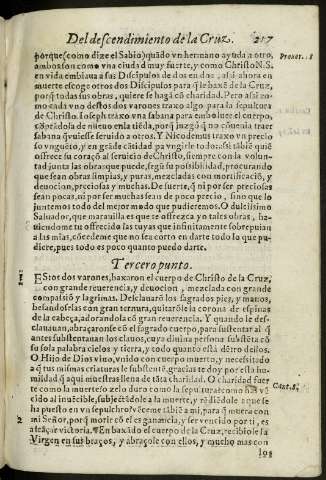 Del descendimiento de la Cruz. 217
porque (como dize el Sabio) quãdo vn hermano ayuda a otro,
ambos son como vna ciudad muy fuerte, y como Christo N. S.
en vida embiaua a sus Discipulos de dos en dos, assi ahora en
muerte escoge otros dos Discipulos para q̃ le baxẽ de la Cruz,
porq̃ todas sus obras, quiere se hagã cõ charidad. Pero assi co-
mo cada vno destos dos varones traxo algo para la sepultura
de Christo. Ioseph traxo vna sabana para emboluer el cuerpo,
cõprãdola de nueuo en la tiẽda, porq̃ juzgò q̃ no cõuenia traer
sabana q̃ vuiesse seruido a otros. Y Nicodemus traxo vn precio
so vnguẽto, y en grãde cãtidad pa vngirle todo: assi tãbiẽ quiẽ
ofrece su coraçõ al seruicio de Christo, siempre con la volun-
tad junta las obras que puede, segũ su posibilidad, procurando
que sean obras limpias, y puras, mezcladas con mortificaciõ, y
deuocion, preciosas y muchas. De suerte, q̃ ni por ser preciosas
sean pocas, ni por ser muchas sean de poco precio, sino que lo
juntemos todo del mejor modo que pudieremos. O dulcissimo
Saluador, que marauilla es que te ofrezca yo tales obras, ha-
uiendome tu ofrecido las tuyas que infinitamente sobrepujan
a las mias, cõcedeme que no sea corto en darte todo lo que pu-
diere, pues todo es poco quanto puedo darte.
Prouer. 18
Tercero punto.
1 Estos dos varones, baxaron el cuerpo de Christo de la Cruz,
con grande reuerencia, y deuocion, mezclada con grande
compassiõ y lagrimas. Desclauarõ los sagrados pies, y manos,
besandoselas con gran ternura, quitarõle la corona de espinas
de la cabeça, adorandola cõ gran reuerencia. Y quando le des-
clauauan, abraçaronse cõ el sagrado cuerpo, para sustentar al q̃
antes substentauan los clauos, cuya diuina persona substẽta cõ
su sola palabra cielos y tierra, y todo quanto està dẽtro dellos.
O Hijo de Dios viuo, vnido con cuerpo muerto, y necessitado
a q̃ tus mismas criaturas le substentẽ, gracias te doy por esta hu-
mildad q̃ aqui muestras llena de tãta charidad. O charidad fuer
te como la muerte! o zelo duro como la sepultura! como has vẽ
cido al inuẽcible, subjectãdole a la muerte, y rẽdiẽdole a que se
ha puesto en vn sepulchro? vẽceme tãbiẽ a mi, para q̃ muera con
Cant. 8.
2 mi Señor, porq̃ morir cõ el es ganancia, y ser vencido por ti, es
alcãçar victoria. ¶ En baxãdo el cuerpo de la Cruz, recibiole la
Virgen en sus braços, y abraçole con ellos, y mucho mas con
los